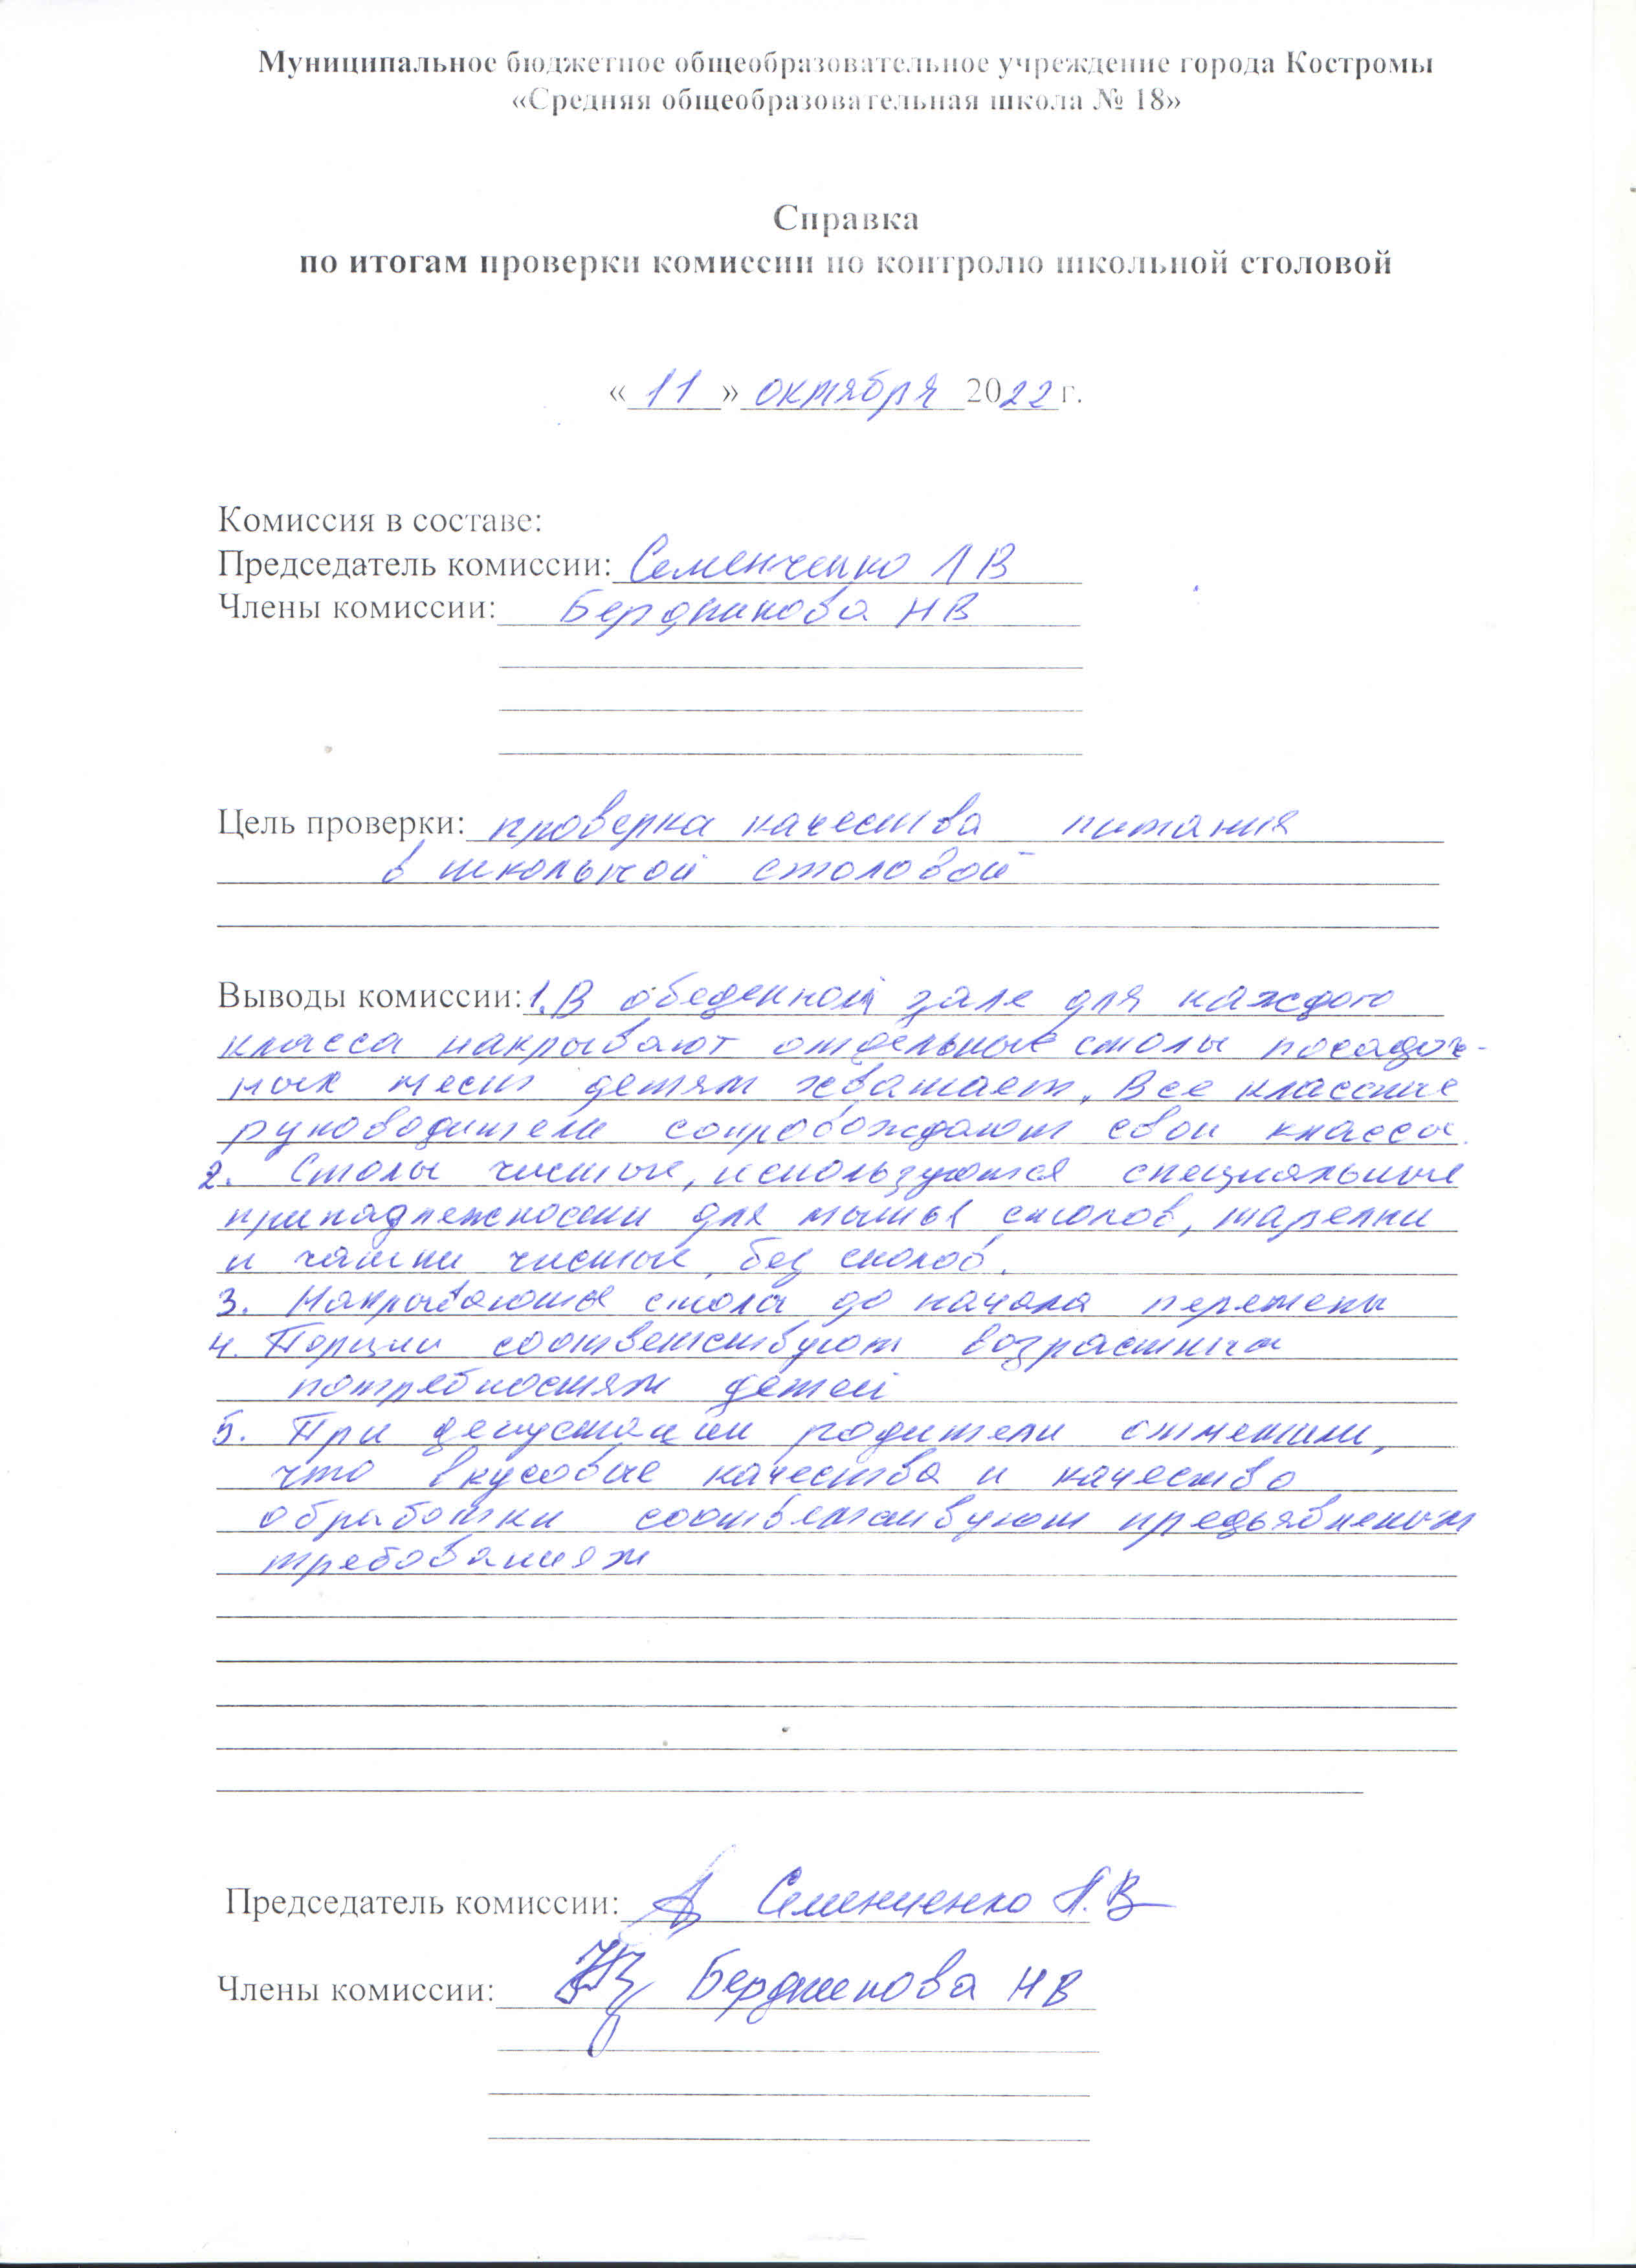 Муниципальное бюджетное общеобразовательное учреждение города Костромы
«Средняя общеобразовательная школа № 18»
Справка
по итогам проверки комиссии по контролю школьной столовой
«11» октября 2022 г.
Комиссия в составе:
Председатель комиссии: Семенченко Л В
Члены комиссии: Бердникова Н В
Цель проверки: проверка качества питания
в школьной столовой
Выводы комиссии: 1. В обеденной зале для каждого
класса накрывают отдельные столы посадоч-
ных мест детям хватает. Все классные
руководители сопровождают свои классы.
2. Столы чистые, используются специальные
принадлежности для мытья столов, тарелки
и чашки чистые, без сколов.
3. Накрываются столы до начала перемены
4. Порции соответствуют возрастным
потребностям детей
5. При дегустации родители отметили,
что вкусовые качества и качество
обработки соответствуют предъявленым
требованиям
Председатель комиссии: Семенченко Л.В
Члены комиссии: Бердникова Н В